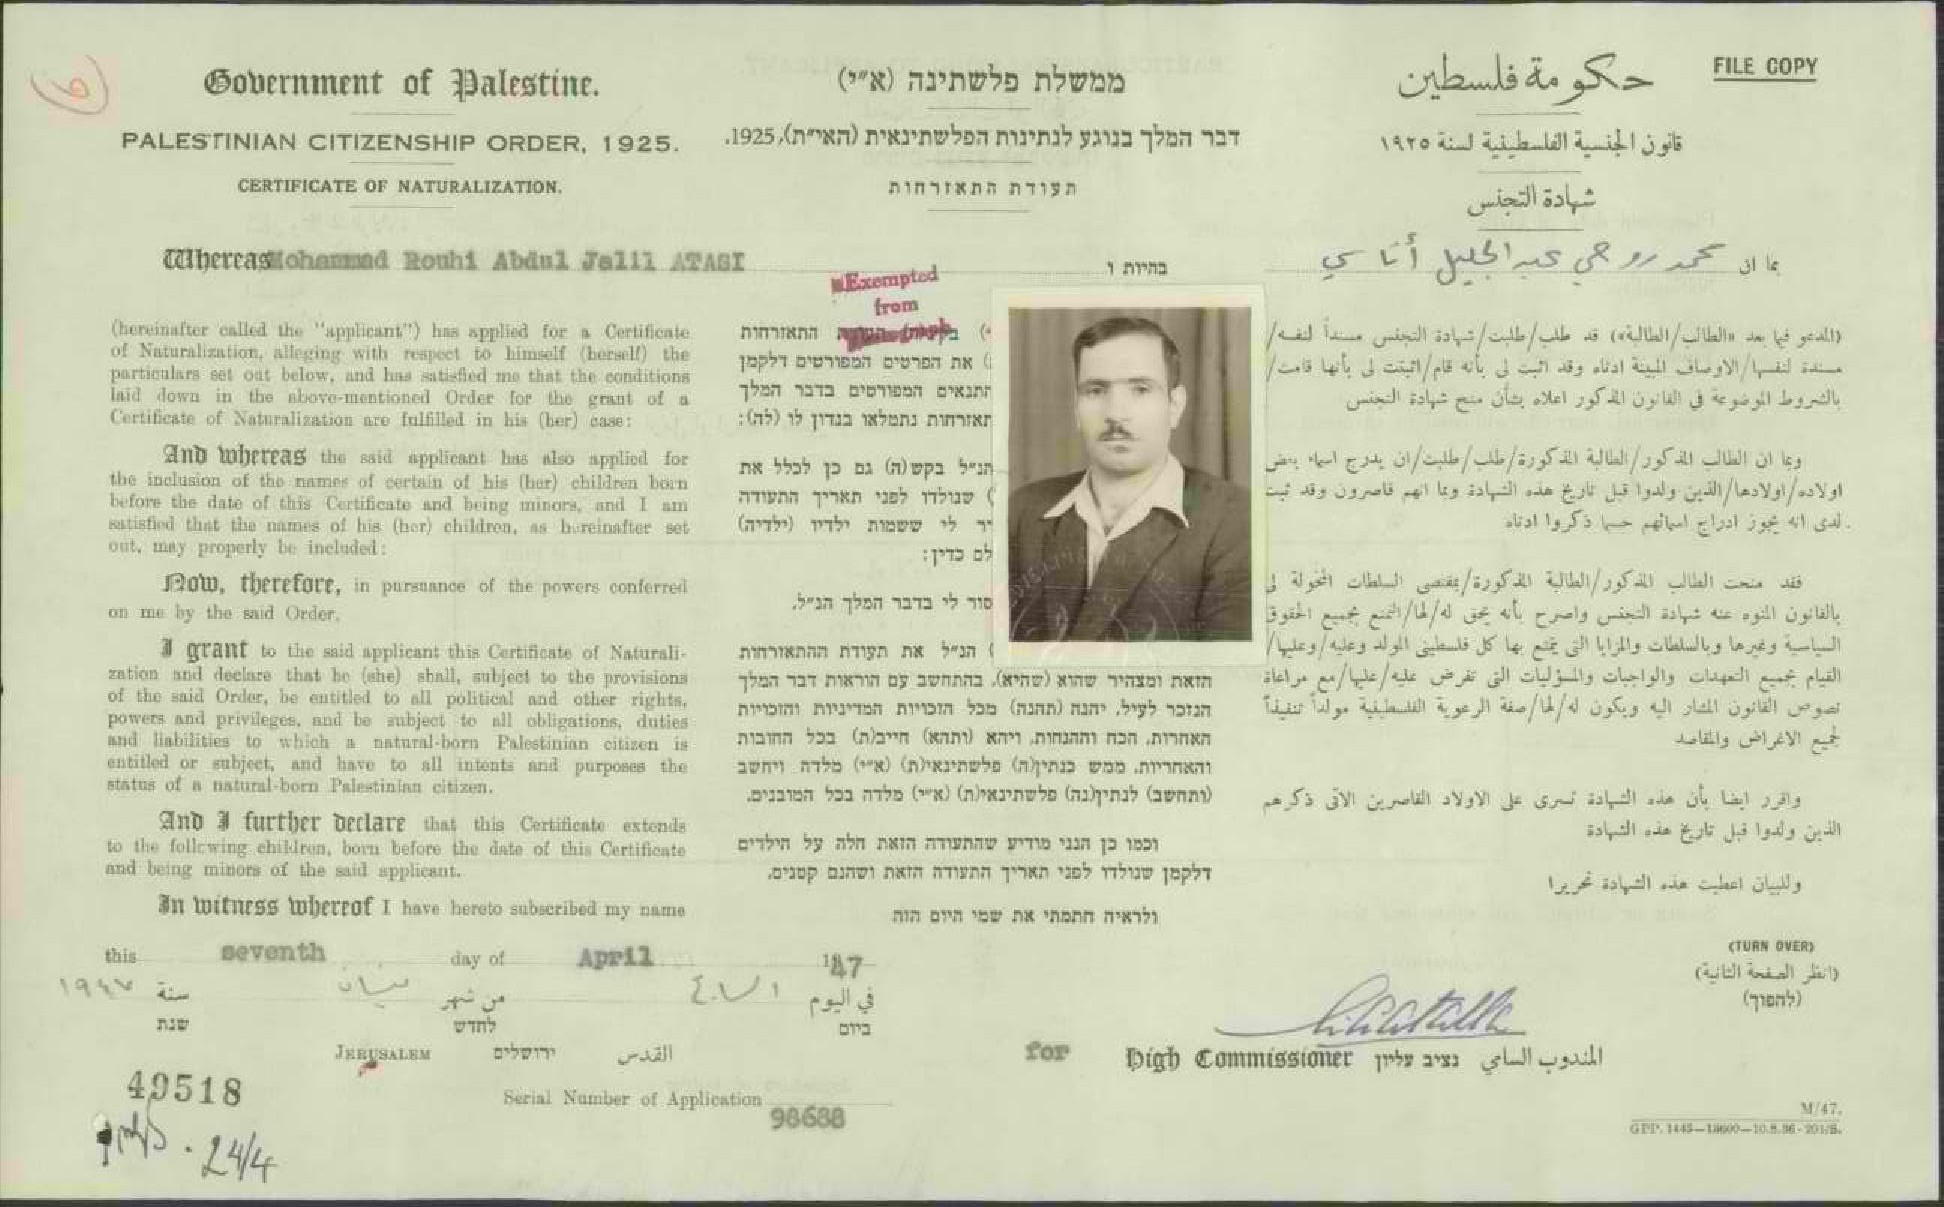 FILE COPY
Government of Palestine.
PALESTINIAN CITIZENSHIP ORDER, 1925.
CERTIFICATE OF NATURALIZATION.
ממשלת פלשתינה (א״י)
דבר המלך בנוגע לנתינות הפלשתינאית (האי״ת), 1925.
תעודת התאזרחות
حكومة فلسطين
قانون الجنسية الفلسطينية لسنة ١٩٢٥
شهادة التجنس
Whereas Mohammad Rouhi Abdul Jalil ATASI
בהיות ו
بما ان محمد روحي عبد الجليل أتاسي
Exempted
from
(hereinafter called the "applicant") has applied for a Certificate
of Naturalization, alleging with respect to himself (herself) the
particulars set out below, and has satisfied me that the conditions
laid down in the above-mentioned Order for the grant of a
Certificate of Naturalization are fulfilled in his (her) case:
And whereas the said applicant has also applied for
the inclusion of the names of certain of his (her) children born
before the date of this Certificate and being minors, and I am
satisfied that the names of his (her) children, as hereinafter set
out, may properly be included:
Now, therefore, in pursuance of the powers conferred
on me by the said Order,
I grant to the said applicant this Certificate of Naturali-
zation and declare that he (she) shall, subject to the provisions
of the said Order, be entitled to all political and other rights,
powers and privileges, and be subject to all obligations, duties
and liabilities to which a natural-born Palestinian citizen is
entitled or subject, and have to all intents and purposes the
status of a natural-born Palestinian citizen.
And I further declare that this Certificate extends
to the following children, born before the date of this Certificate
and being minors of the said applicant.
In witness whereof I have hereto subscribed my name
התאזרחות
את הפרטים המפורטים דלקמן
התנאים המפורטים בדבר המלך
תאזרחות נתמלאו בנדון לו (לה):
הנ״ל בקש(ה) גם כן לכלל את
שנולדו לפני תאריך התעודה
יר לי ששמות ילדיו (ילדיה)
לם כדין:
סור לי בדבר המלך הנ״ל,
הנ״ל את תעודת ההתאזרחות
הזאת ומצהיר שהוא (שהיא), בהתחשב עם הוראות דבר המלך
הנזכר לעיל, יהנה (תהנה) מכל הזכויות המדיניות והזכויות
האחרות, הכח וההנחות, ויהא (ותהא) חייב(ת) בכל החובות
והאחריות, ממש כנתין(ה) פלשתינאי(ת) (א״י) מלדה ויחשב
(ותחשב) לנתין(נה) פלשתינאי(ת) (א״י) מלדה בכל המובנים.
וכמו כן הנני מודיע שהתעודה הזאת חלה על הילדים
דלקמן שנולדו לפני תאריך התעודה הזאת ושהנם קטנים.
ולראיה חתמתי את שמי היום הזה
(المدعو فيما بعد «الطالب/الطالبة») قد طلب/طلبت/شهادة التجنس مسنداً لنفسه/
مسندة لنفسها/الاوصاف المبينة ادناه وقد اثبت لى بأنه قام/اثبتت لى بأنها قامت/
بالشروط الموضوعة في القانون المذكور اعلاه بشأن منح شهادة التجنس
وبما ان الطالب المذكور/الطالبة المذكورة/طلب/طلبت/ان يدرج اسماء بعض
اولاده/اولادها/الذين ولدوا قبل تاريخ هذه الشهادة وبما انهم قاصرون وقد ثبت
لدى انه يجوز ادراج اسمائهم حسبما ذكروا ادناه.
فقد منحت الطالب المذكور/الطالبة المذكورة/بمقتضى السلطات المخولة لى
بالقانون المنوه عنه شهادة التجنس واصرح بأنه يحق له/لها/التمتع بجميع الحقوق
السياسية وغيرها وبالسلطات والمزايا التى يتمتع بها كل فلسطينى المولد وعليه/وعليها/
القيام بجميع التعهدات والواجبات والمسؤليات التى تفرض عليه/عليها/مع مراعاة
نصوص القانون المشار اليه ويكون له/لها/صفة الرعوية الفلسطينية مولداً تنفيذاً
لجميع الاغراض والمقاصد
واقرر ايضا بأن هذه الشهادة تسرى على الاولاد القاصرين الآتى ذكرهم
الذين ولدوا قبل تاريخ هذه الشهادة
وللبيان اعطيت هذه الشهادة تحريرا
this seventh day of April 1947
في اليوم السابع من شهر نيسان سنة ١٩٤٧
ביום לחדש שנת
JERUSALEM ירושלים القدس
(TURN OVER)
(انظر الصفحة الثانية)
(להפוך)
for High Commissioner נציב עליון المندوب السامي
49518
Serial Number of Application 98688
24/4
M/47.
GPP. 1445—18600—10.8.36-201/S.